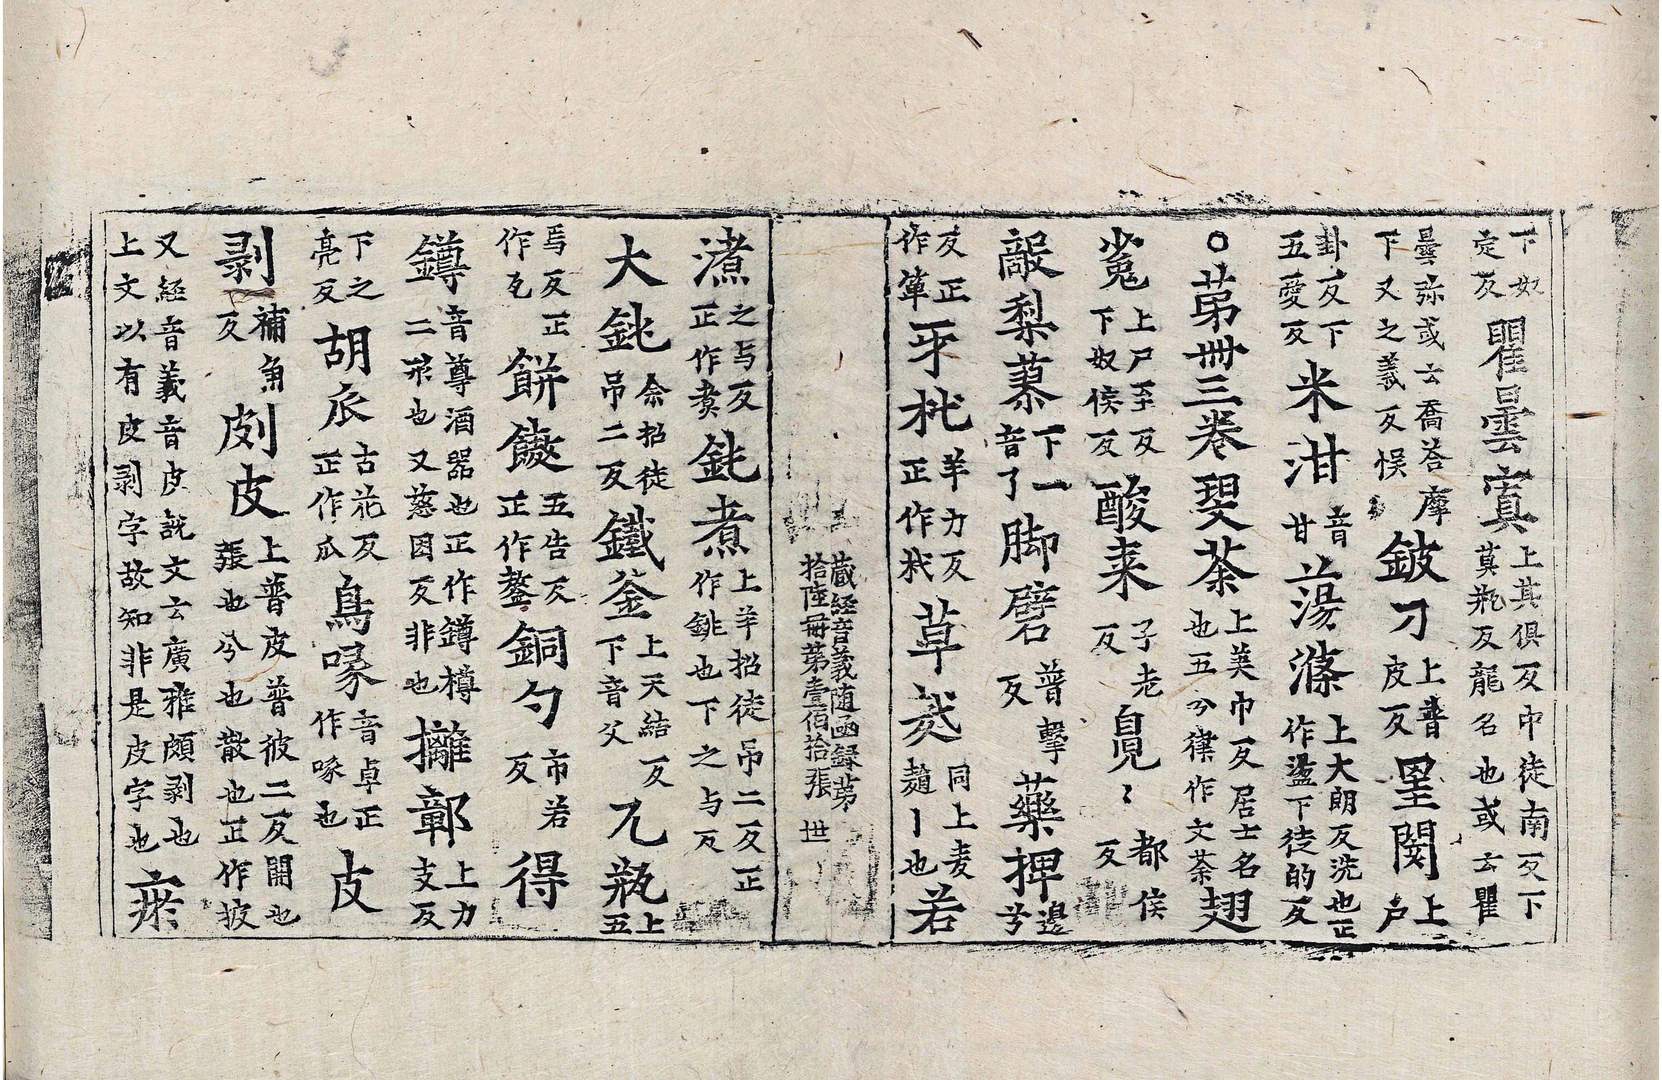 下奴定反瞿曇寘上其俱反中徒南反下莫瓶反龍名也或云瞿
曇弥或云喬荅摩下又之義反悮鈹刀上普皮反罣閡上户
卦反下五愛反米泔音甘蕩滌上大朗反洗也正作盪下徒的反
○苐卌三卷㺨荼上莫巾反居士名也五分律作文荼翅
㝹上尸至反下奴侯反酸来子老反覓〻都侯反
䣺梨蔂下一音了脚礕普擊反藥押邊兮
反正作箄平枇羊力反正作杙草茇同上麦䞴丨也若
藏經音義随函録苐拾陸冊第壹佰拾張 世
㵭之与反正作煑銚煮上羊招徒吊二反正作銚也下之与反
大銚余招徒吊二反鐵釜上天結反下音父兀瓶上五
舄反正作瓦餅䥝五告反正作鏊銅勺市若反得
鐏音尊酒器也正作鐏樽二形也又慈困反非也攡鄣上力支反
下之亮反胡瓜古花反正作瓜鳥喙音卓正作啄也皮
剥補角反㓟皮上普皮普彼二反開也張也分也散也正作披
又經音義音皮説文云廣雅㓟剥也上文以有皮剥字故知非是皮字也瘀